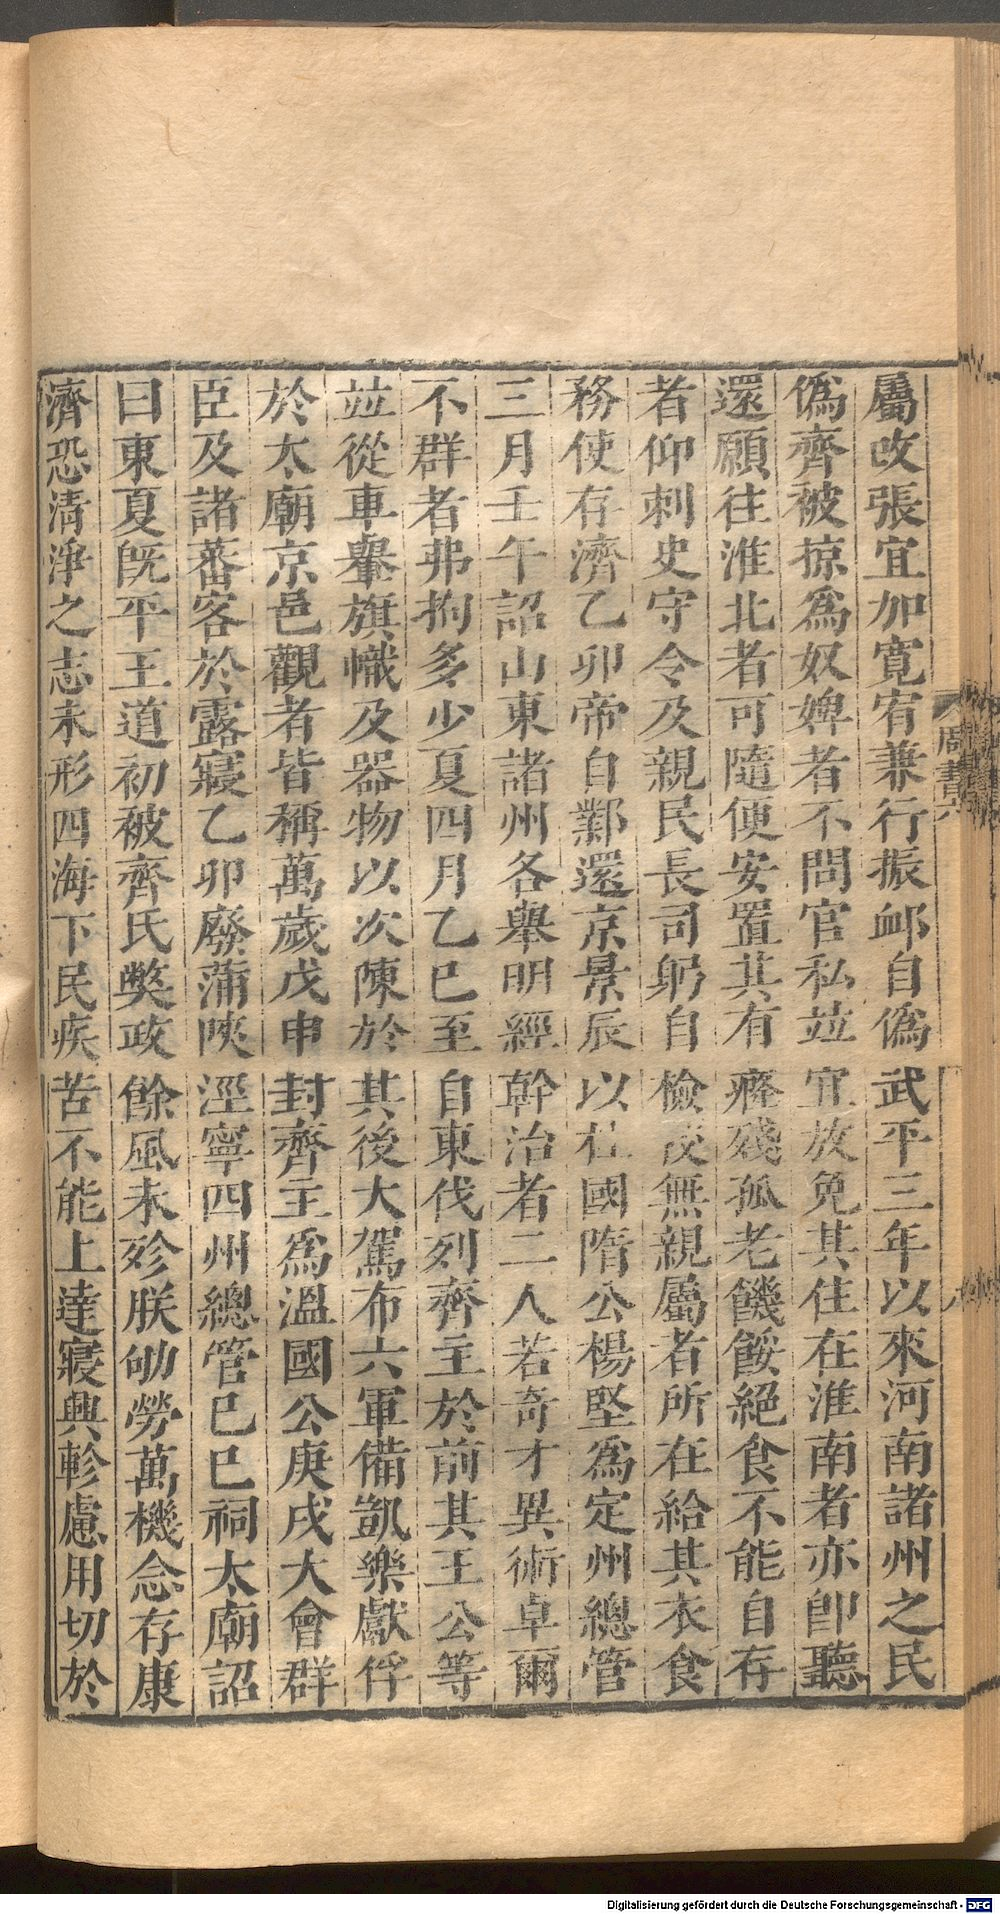 屬改張宜加寛宥兼行振卹自偽武平三年以來河南諸州之民
偽齊被掠爲奴婢者不問官私竝宜放免其住在淮南者亦卽聽
還願往淮北者可隨便安置其有癃殘孤老饑餒絕食不能自存
者仰刺史守令及親民長司躬自檢挍無親屬者所在給其衣食
務使存濟乙卯帝自鄴還京景辰以柱國隋公楊堅爲定州總管
三月壬午詔山東諸州各舉明經幹治者二人若奇才異術卓爾
不群者弗拘多少夏四月乙巳至自東伐列齊主於前其王公等
竝從車轝旗幟及器物以次陳於其後大駕布六軍備凱樂獻俘
於太廟京邑觀者皆稱萬歲戊申封齊主爲溫國公庚戌大會群
臣及諸蕃客於露寢乙卯廢蒲陝涇寧四州總管己巳祠太廟詔
曰東夏旣平王道初被齊氏獘政餘風未殄朕劬勞萬機念存康
濟恐清淨之志未形四海下民疾苦不能上達寢興軫慮用切於
周書六
Digitalisierung gefördert durch die Deutsche Forschungsgemeinschaft - DFG